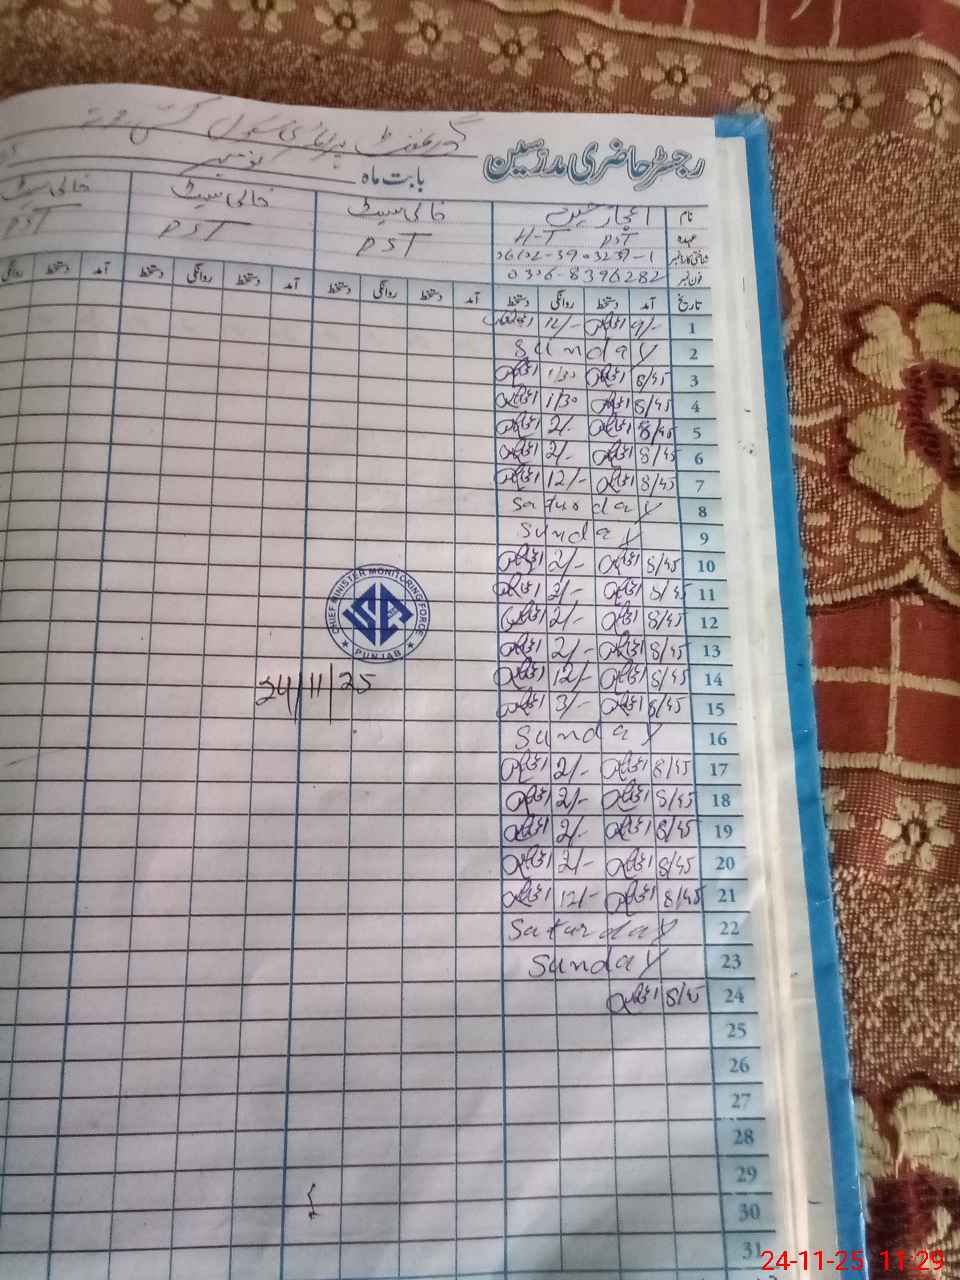 گورنمنٹ پرائمری سکول
رجسٹر حاضری مدرسین
بابت ماہ نومبر
نام اعجاز حسین خالی سیٹ خالی سیٹ خالی سیٹ
عہدہ PST H-T PST PST PST
شناختی کارڈ نمبر
فون نمبر 0306-8396282
تاریخ آمد دستخط روانگی دستخط آمد دستخط روانگی دستخط آمد دستخط روانگی دستخط آمد دستخط روانگی
1 9/- اعجاز 12/- اعجاز
2 Sunday
3 8/45 اعجاز 1/30 اعجاز
4 8/45 اعجاز 1/30 اعجاز
5 8/45 اعجاز 2/- اعجاز
6 8/45 اعجاز 2/- اعجاز
7 8/45 اعجاز 12/- اعجاز
8 Saturday
9 Sunday
10 8/45 اعجاز 2/- اعجاز
11 8/45 اعجاز 2/- اعجاز
12 8/45 اعجاز 2/- اعجاز
13 8/45 اعجاز 2/- اعجاز
14 8/45 اعجاز 12/- اعجاز
15 8/45 اعجاز 3/- اعجاز
16 Sunday
17 8/45 اعجاز 2/- اعجاز
18 8/45 اعجاز 2/- اعجاز
19 8/45 اعجاز 2/- اعجاز
20 8/45 اعجاز 2/- اعجاز
21 8/45 اعجاز 12/- اعجاز
22 Saturday
23 Sunday
24 8/45 اعجاز
25
26
27
28
29
30
31
CHIEF MINISTER MONITORING FORCE
PUNJAB
24/11/25
24-11-25 11:29